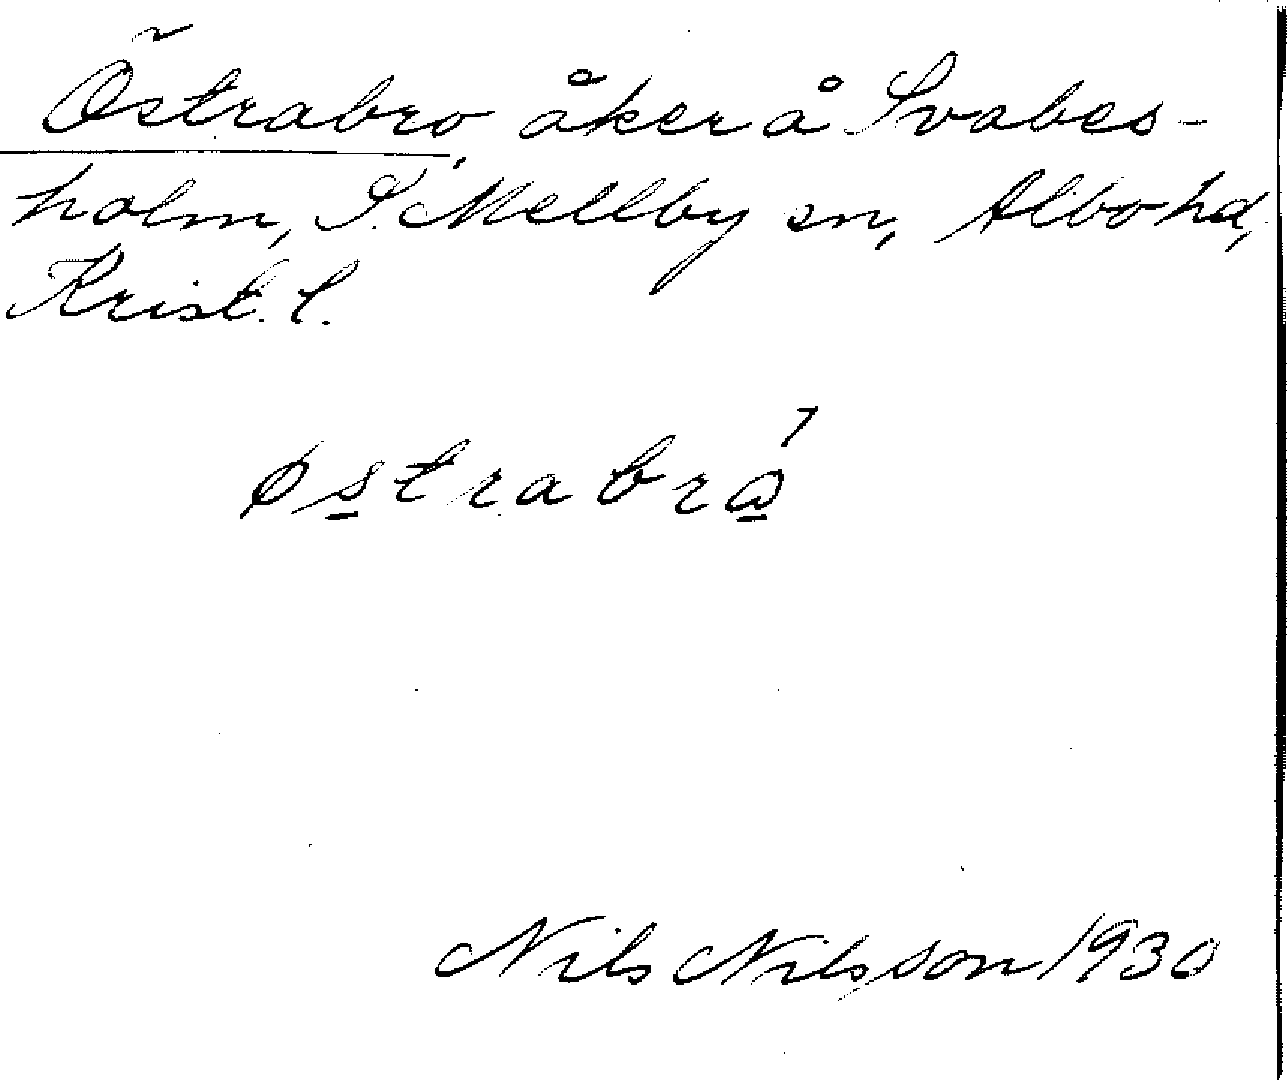 Östrabro, åker å Svabes-
holm, S. Mellby sn, Albo hd,
Krist. l.
østrabrå
Nils Nilsson 1930